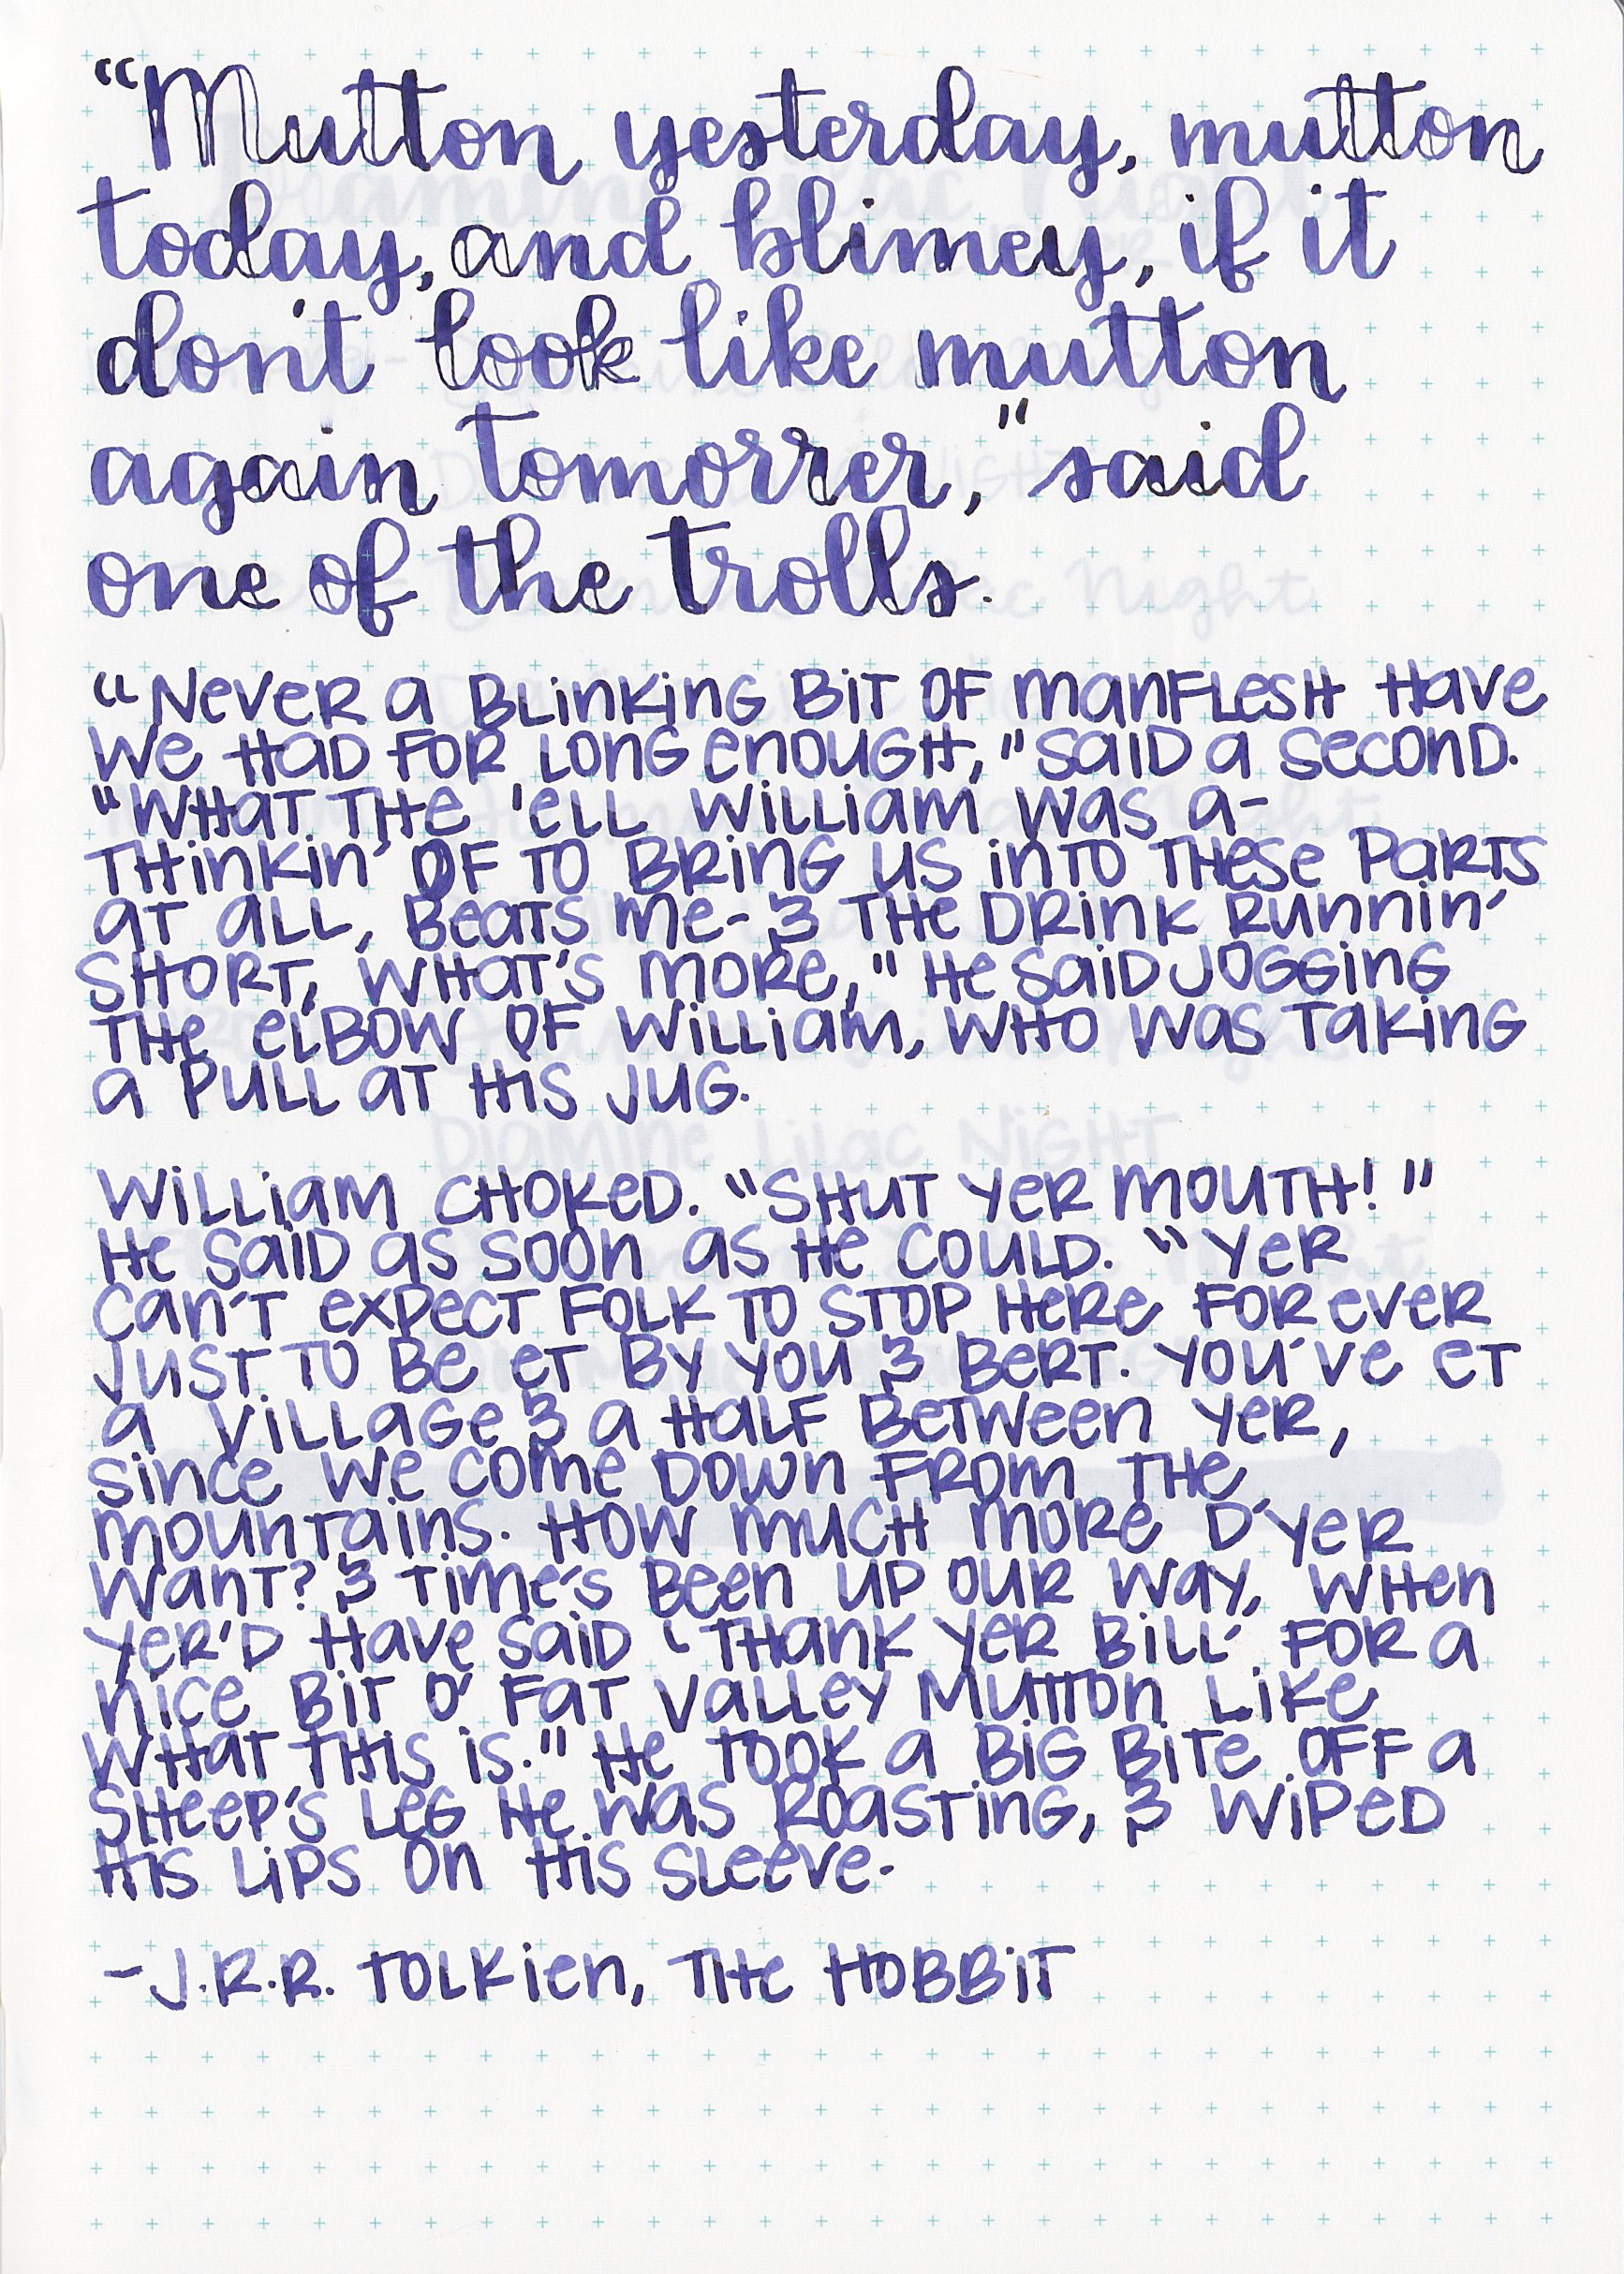 “Mutton yesterday, mutton
today, and blimey, if it
don't look like mutton
again tomorrer," said
one of the trolls.
“Never a blinking bit of manflesh have
we had for long enough," said a second.
"What the 'ell William was a-
thinkin' of to bring us into these parts
at all, beats me- & the drink runnin'
short, what's more," he said jogging
the elbow of William, who was taking
a pull at his jug.
William choked. "Shut yer mouth!"
He said as soon as he could. "Yer
can't expect folk to stop here forever
just to be et by you & Bert. You've et
a village & a half between yer,
since we come down from the
mountains. How much more d'yer
want? & time's been up our way, when
yer'd have said 'thank yer Bill' for a
nice bit o' fat valley mutton like
what this is." He took a big bite off a
sheep's leg he was roasting, & wiped
his lips on his sleeve.
-J.R.R. Tolkien, The Hobbit
Diamine Lilac Night